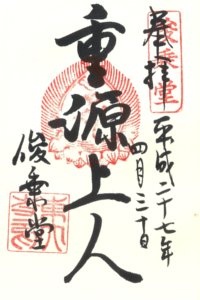 奉拝
俊乗堂
平成二十七年
四月三十日
重源上人
俊乗堂